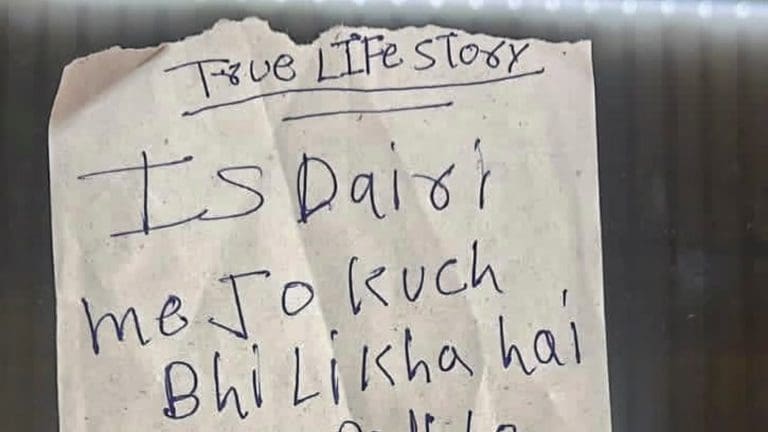 True LIFe story
Is Dairi
me Jo kuch
Bhi Likha hai